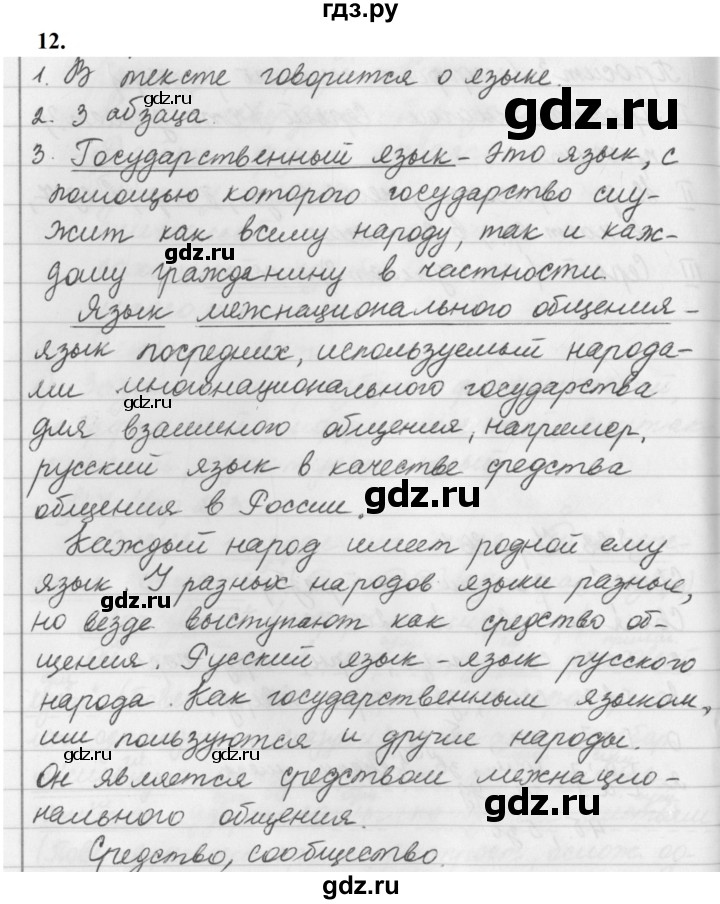 гдз.ру
12.
1. В тексте говорится о языке.
gdz.ru
gdz.ru
2. 3 абзаца.
3. Государственный язык - это язык, с
помощью которого государство слу-
жит как всему народу, так и каж-
gdz.ru
дому гражданину в частности.
Язык межнационального общения -
язык посредник, используемый народа-
ми многонационального государства
gdz.ru
для взаимного общения, например,
русский язык в качестве средства
gdz.ru
общения в России.
Каждый народ имеет родной ему
язык У разных народов языки разные,
gdz.ru
но везде выступают как средство об-
щения. Русский язык - язык русского
народа. Как государственным языком,
им пользуются и другие народы.
gdz.ru
gdz.ru
Он является средством межнацио-
нального общения.
gdz.ru
Средство, сообщество.
gdz.ru